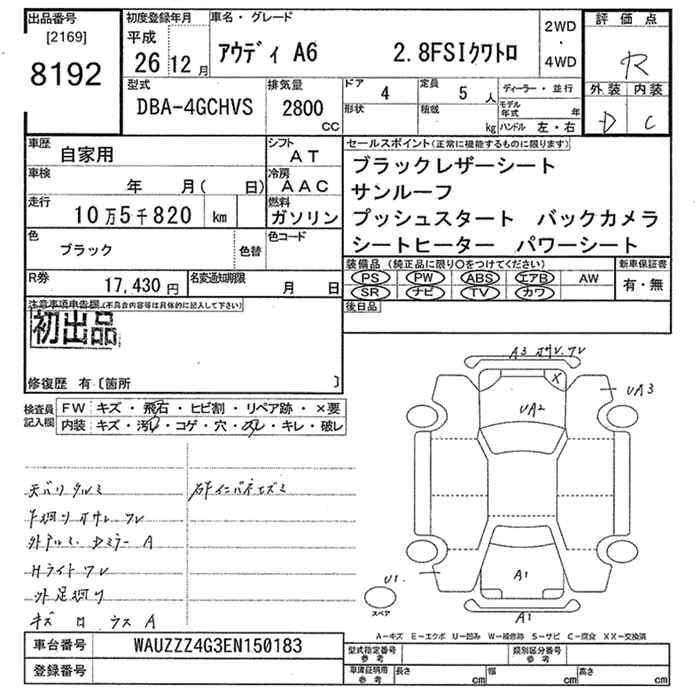 出品番号
[2169]
8192
初度登録年月
平成
26 12月
車名・グレード
アウディ A6 2.8FSIクワトロ
2WD
・
4WD
評価点
R
外装 内装
D C
型式
DBA-4GCHVS
排気量
2800
CC
ドア 4
形状
定員 5 人
積載 kg
ディーラー・並行
モデル年式 年
ハンドル 左・右
車歴 自家用
シフト AT
車検 年 月( 日)
冷房 AAC
走行 10万5千820 km
燃料 ガソリン
色 ブラック
色替
色コード
R券 17,430円
名変通知期限 月 日
セールスポイント(正常に機能するものに限ります)
ブラックレザーシート
サンルーフ
プッシュスタート バックカメラ
シートヒーター パワーシート
装備品(純正品に限り○をつけてください)
PS PW ABS エアB AW
SR ナビ TV カワ
新車保証書
有・無
後日品
注意事項申告欄(不具合内容等は具体的に記入して下さい)
初出品
修復歴 有〔箇所 〕
検査員記入欄
FW キズ・飛石・ヒビ割・リペア跡・×要
内装 キズ・汚れ・コゲ・穴・スレ・キレ・破レ
天バリタルミ
下廻りオサレワレ
外アルミ Dミラー A
Hライトワレ
外足廻り
キズ ロ ウス A
A3 オサレ.ワレ
X
UA2
UA3
A1
U1.
A1
スペア
A-キズ E-エクボ U-凹み W-補修跡 S-サビ C-腐食 XX-交換済
車台番号 WAUZZZ4G3EN150183
登録番号
型式指定番号 参考
類別区分番号 参考
車庫証明用 参考
長さ cm
幅 cm
高さ cm